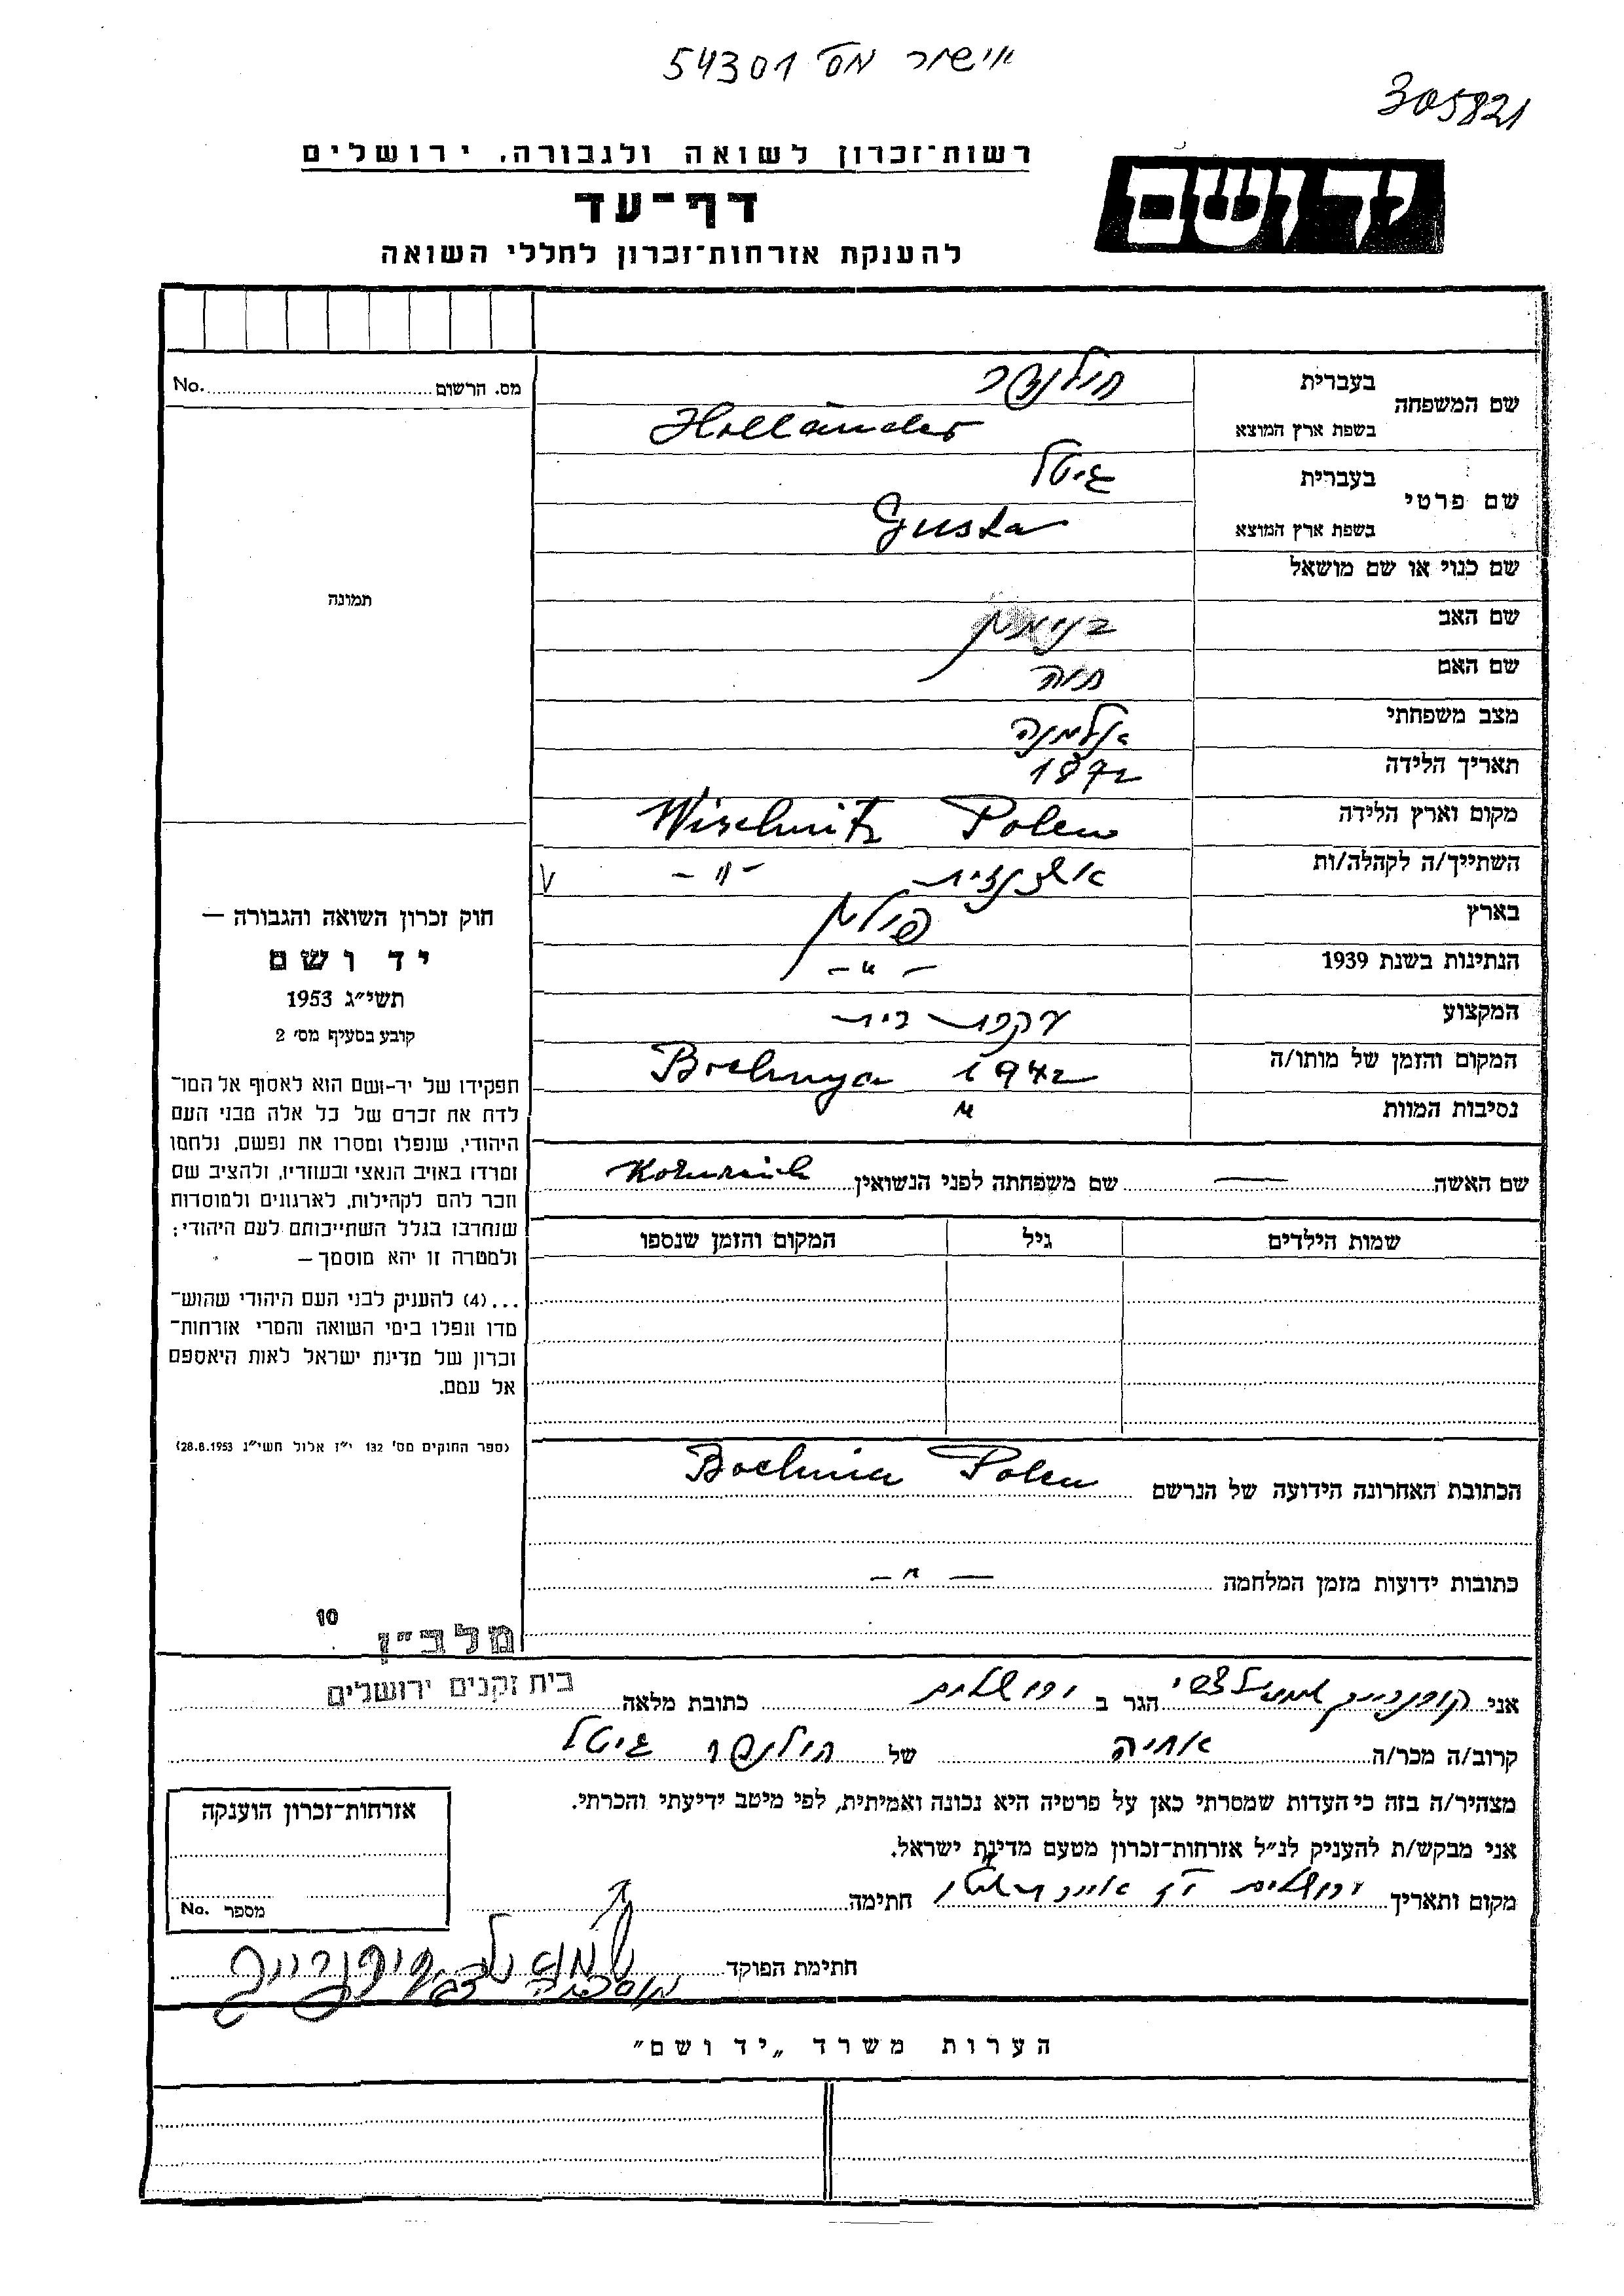 אישור מס 54301
305821
יד ושם
רשות־זכרון לשואה ולגבורה, ירושלים
דף־עד
להענקת אזרחות־זכרון לחללי השואה
מס. הרשום No.
תמונה
חוק זכרון השואה והגבורה —
יד ושם
תשי״ג 1953
קובע בסעיף מס׳ 2
תפקידו של יד־ושם הוא לאסוף אל המו־
לדת את זכרם של כל אלה מבני העם
היהודי, שנפלו ומסרו את נפשם, נלחמו
ומרדו באויב הנאצי ובעוזריו, ולהציב שם
וזכר להם לקהילות, לארגונים ולמוסדות
שנחרבו בגלל השתייכותם לעם היהודי;
ולמטרה זו יהא מוסמך —
...(4) להעניק לבני העם היהודי שהוש־
מדו ונפלו בימי השואה והמרי אזרחות־
זכרון של מדינת ישראל לאות היאספם
אל עמם.
(ספר החוקים מס׳ 132 י״ז אלול תשי״ג 28.8.1953)
שם המשפחה בעברית הולנדר
בשפת ארץ המוצא Holländer
שם פרטי בעברית גיטל
בשפת ארץ המוצא Gusta
שם כנוי או שם מושאל
שם האב בנימין
שם האם חיה
מצב משפחתי אלמנה
תאריך הלידה 1872
מקום וארץ הלידה Wischnitz Polen
השתייך/ה לקהלה/ות אשכנזית -"- V
בארץ פולין
הנתינות בשנת 1939 -"-
המקצוע עקרת בית
המקום והזמן של מותו/ה Bochnya 1942
נסיבות המוות "
שם האשה — שם משפחתה לפני הנשואין
שמות הילדים גיל המקום והזמן שנספו
הכתובת האחרונה הידועה של הנרשם Bochnia Polen
כתובות ידועות מזמן המלחמה -"-
10
מלב״ן
אני הגר ב ירושלים כתובת מלאה בית זקנים ירושלים
קרוב/ה מכר/ה אחיה של הולנדר גיטל
מצהיר/ה בזה כי העדות שמסרתי כאן על פרטיה היא נכונה ואמיתית, לפי מיטב ידיעתי והכרתי.
אני מבקש/ת להעניק לנ״ל אזרחות־זכרון מטעם מדינת ישראל.
מקום ותאריך ירושלים חתימה
חתימת הפוקד
אזרחות־זכרון הוענקה
מספר No.
הערות משרד „יד ושם״